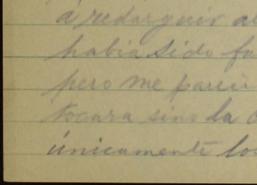 á redarguir a
había sido fa
pero me pareci
tocara sino la c
únicamente los